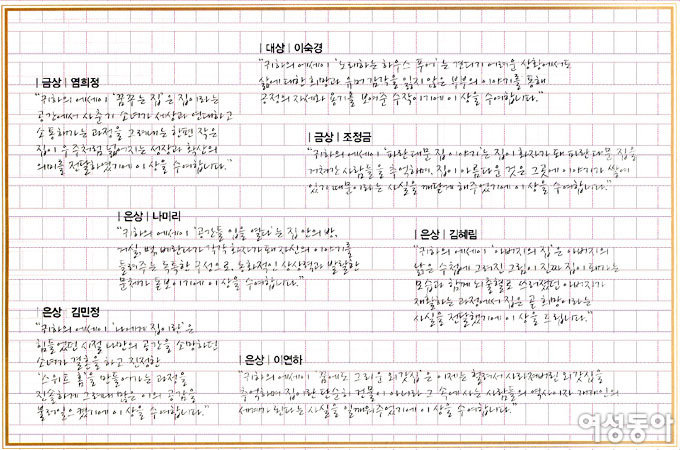 | 대상 | 이숙경
"귀하의 에세이 '노래하는 하우스 푸어'는 견디기 어려운 상황에서도
삶에 대한 희망과 유머 감각을 잃지 않은 부부의 이야기를 통해
긍정의 자세와 용기를 보여준 수작이기에 이 상을 수여합니다."
| 금상 | 염희정
"귀하의 에세이 '꿈꾸는 집'은 집이라는
공간에서 사춘기 소녀가 세상과 연대하고
소통해가는 과정을 그려내는 한편 작은
집이 우주처럼 넓어지는 성장과 확산의
의미를 전달하였기에 이 상을 수여합니다."
| 금상 | 조정금
"귀하의 에세이 '파란 대문 집 이야기'는 집이 화자가 돼 파란 대문 집을
거쳐간 사람들을 추억하며, 집이 아름다운 것은 그곳에 이야기가 쌓여
있기 때문이라는 사실을 깨닫게 해주었기에 이 상을 수여합니다."
| 은상 | 나미리
"귀하의 에세이 '공간들 입을 열다'는 집 안의 방,
거실, 벽, 베란다가 각각 화자가 돼 자신의 이야기를
들려주는 독특한 구성으로, 동화적인 상상력과 발랄한
문체가 돋보이기에 이 상을 수여합니다."
| 은상 | 김혜림
"귀하의 에세이 '아버지의 집'은 아버지의
낡은 수첩에 그려진 그림이 진짜 집이 돼가는
모습과 함께 뇌출혈로 쓰러졌던 아버지가
재활하는 과정에서 집은 곧 희망이라는
사실을 전달했기에 이 상을 드립니다."
| 은상 | 김민정
"귀하의 에세이 '나에게 집이란'은
힘들었던 시절 나만의 공간을 소망하던
소녀가 결혼을 하고 진정한
'스위트 홈'을 만들어가는 과정을
진솔하게 그려내 많은 이의 공감을
불러일으켰기에 이 상을 수여합니다."
| 은상 | 이연하
"귀하의 에세이 '꿈에도 그리운 외갓집'은 이제는 헐려서 사라져버린 외갓집을
추억하며 집이란 단순히 건물이 아니라 그 속에 사는 사람들의 역사이자
세계가 된다는 사실을 일깨워주었기에 이 상을 수여합니다."
여성동아